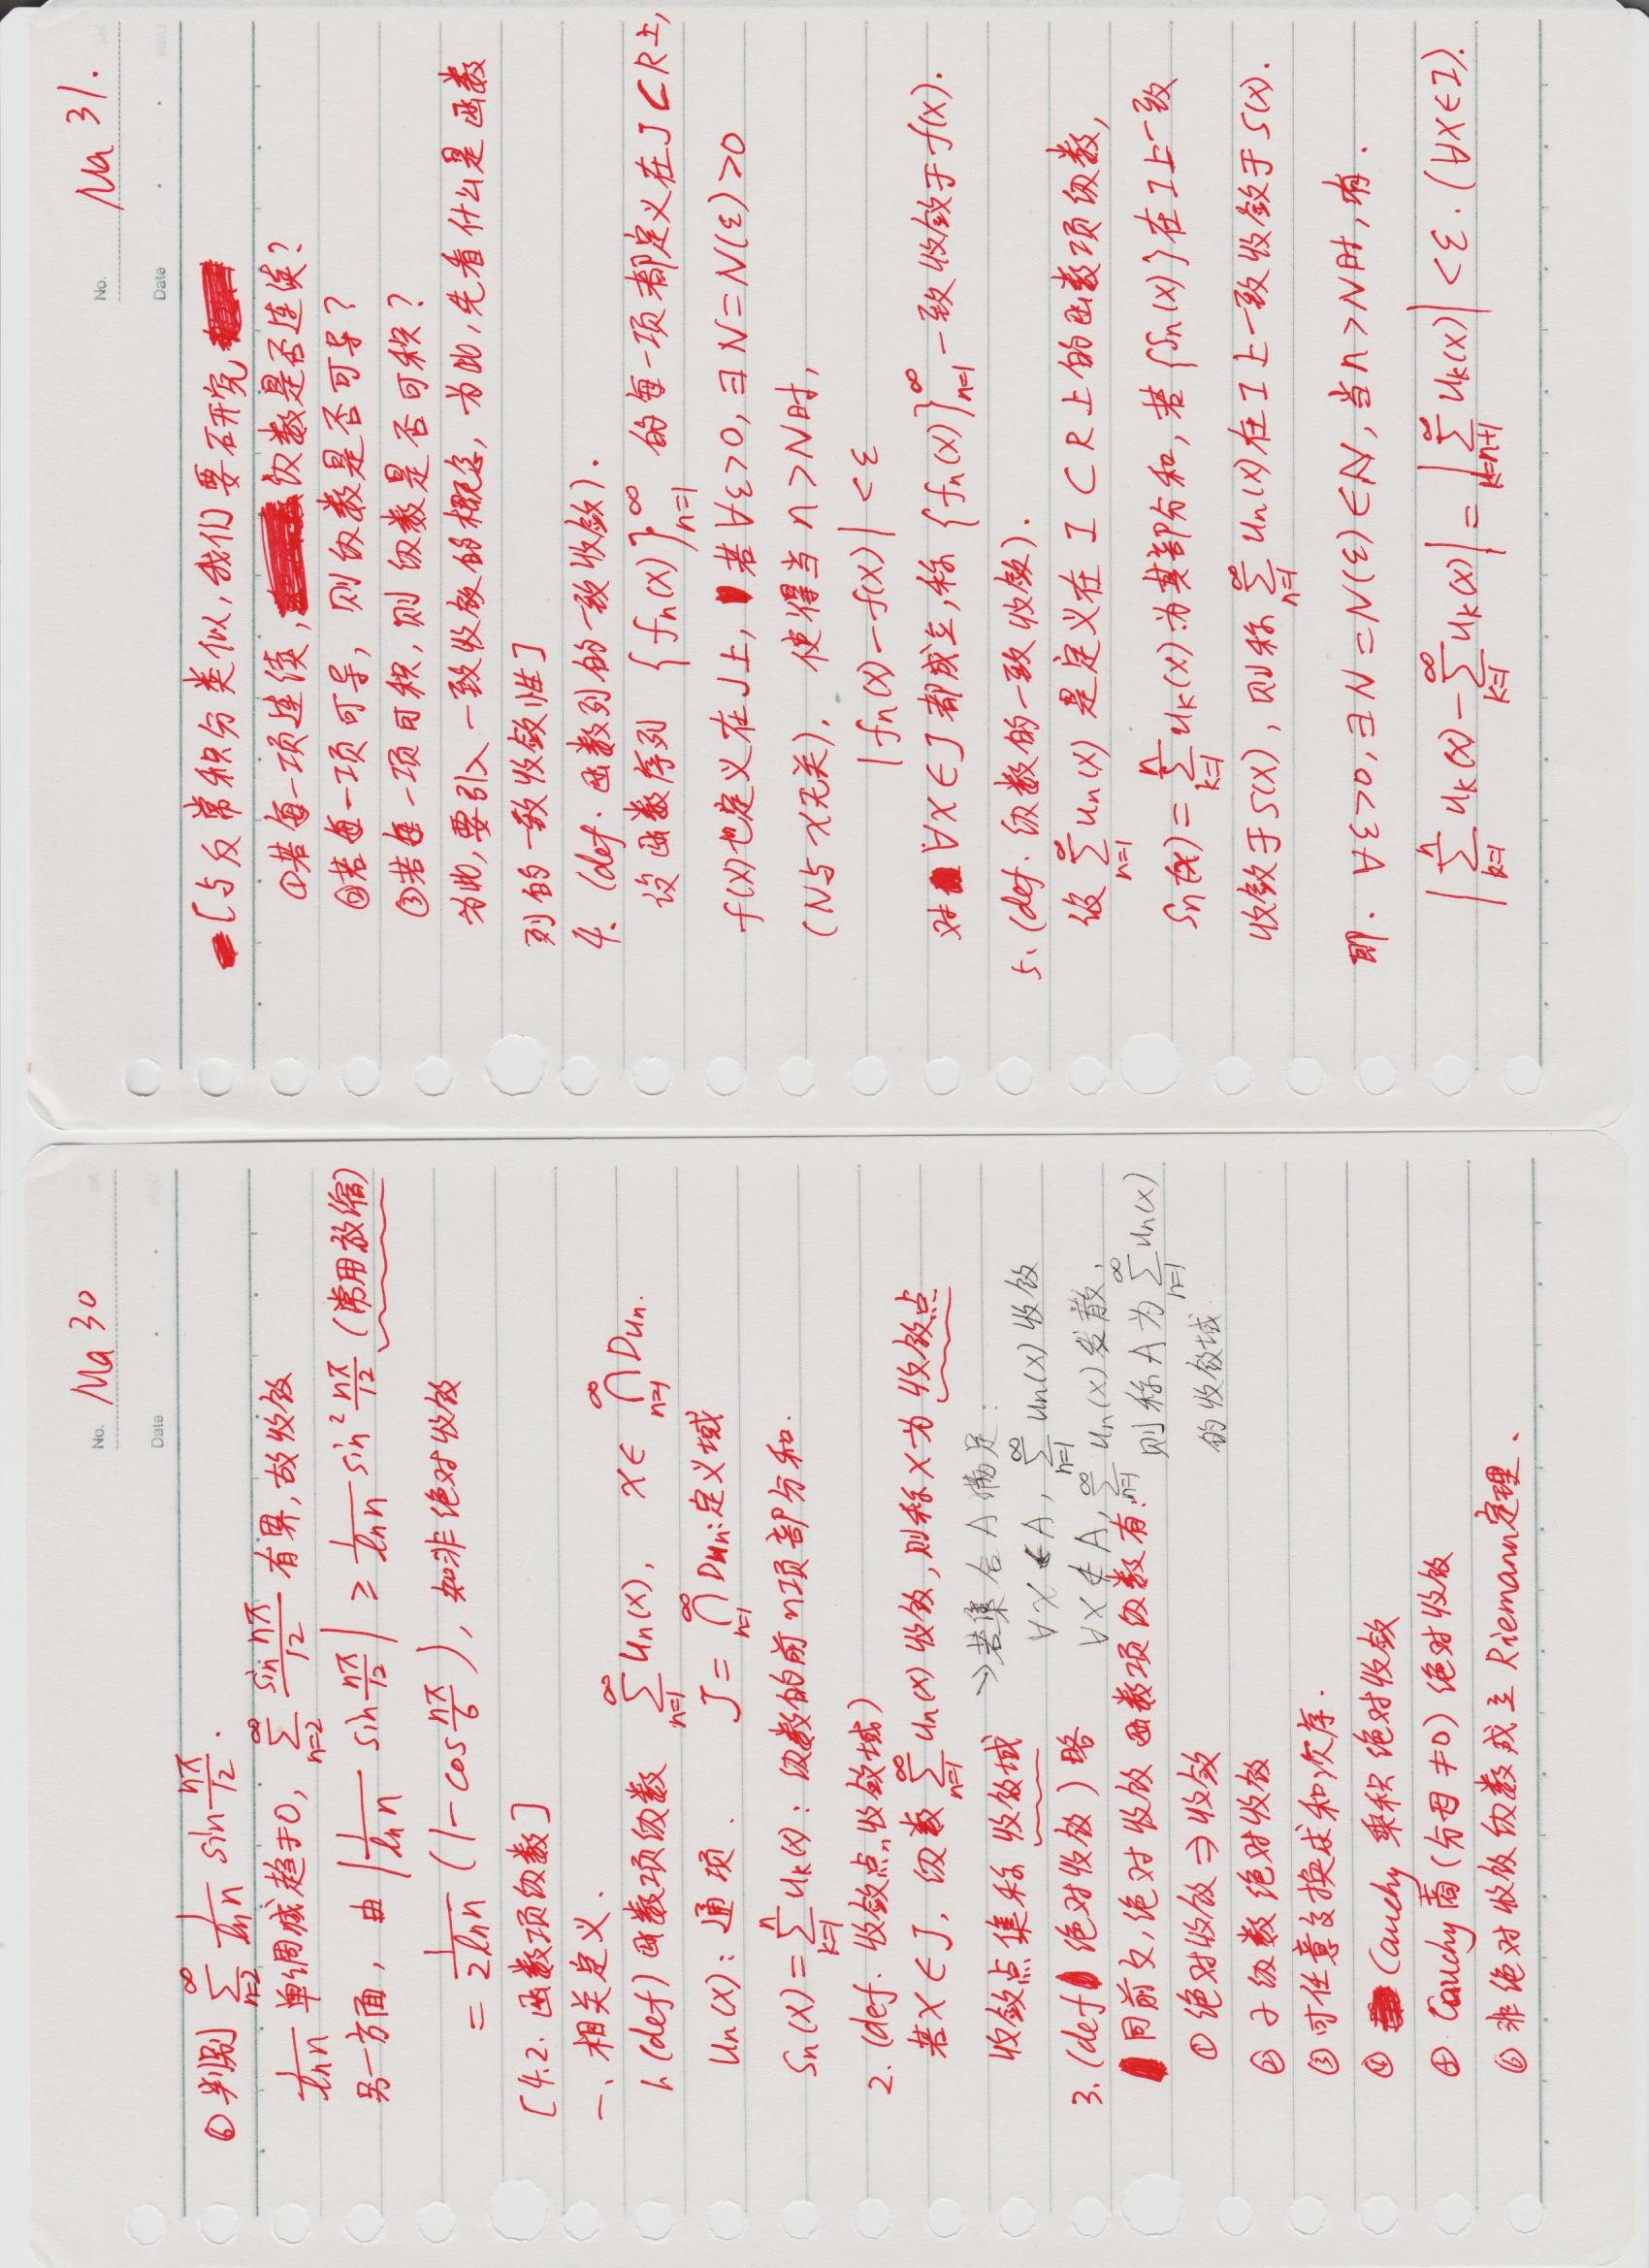 No. Ma 30
Date
⑥ 判别 $\sum_{n=2}^{\infty} \frac{1}{\ln n} \sin \frac{n\pi}{12}$.
$\frac{1}{\ln n}$ 单调减趋于0, $\sum_{n=2}^{\infty} \frac{\sin n\pi}{12}$ 有界, 故收敛
另一方面, 由 $\left| \frac{1}{\ln n} \sin \frac{n\pi}{12} \right| \geq \frac{1}{\ln n} \sin^2 \frac{n\pi}{12}$ (常用放缩)
$= \frac{1}{2\ln n} (1 - \cos \frac{n\pi}{6})$, 知非绝对收敛
[4.2. 函数项级数]
一、相关定义.
1. (def) 函数项级数 $\sum_{n=1}^{\infty} u_n(x)$, $x \in \bigcap_{n=1}^{\infty} D_{u_n}$.
$u_n(x)$: 通项. $J = \bigcap_{n=1}^{\infty} D_{u_n}$: 定义域
$S_n(x) = \sum_{k=1}^{n} u_k(x)$: 级数的前n项部分和.
2. (def. 收敛点、收敛域)
若 $x \in J$, 级数 $\sum_{n=1}^{\infty} u_n(x)$ 收敛, 则称x为收敛点
收敛点集称收敛域
→若集合A满足:
$\forall x \in A$, $\sum_{n=1}^{\infty} u_n(x)$ 收敛
$\forall x \notin A$, $\sum_{n=1}^{\infty} u_n(x)$ 发散.
则称A为 $\sum_{n=1}^{\infty} u_n(x)$
的收敛域
3. (def 绝对收敛) 略
同前文, 绝对收敛函数项级数有:
① 绝对收敛 ⇒ 收敛
② 子级数绝对收敛
③ 可任意交换求和次序.
④ Cauchy 乘积绝对收敛
⑤ Cauchy商(分母≠0) 绝对收敛
⑥ 非绝对收敛级数成立 Riemann定理.
No. Ma 31.
Date
[与反常积分类似, 我们要研究
①若每一项连续, 级数是否连续?
②若每一项可导, 则级数是否可导?
③若每一项可积, 则级数是否可积?
为此, 要引入一致收敛的概念, 为此, 先看什么是函数
列的一致收敛性]
4. (def. 函数列的一致收敛).
设函数序列 $\{f_n(x)\}_{n=1}^{\infty}$ 的每一项都定义在 $J \subset R$ 上,
$f(x)$ 也定义在J上, 若 $\forall \varepsilon > 0$, $\exists N = N(\varepsilon) > 0$
(N与x无关), 使得当 $n > N$ 时,
$|f_n(x) - f(x)| < \varepsilon$
对 $\forall x \in J$ 都成立, 称 $\{f_n(x)\}_{n=1}^{\infty}$ 一致收敛于 $f(x)$.
5. (def. 级数的一致收敛).
设 $\sum_{n=1}^{\infty} u_n(x)$ 是定义在 $I \subset R$ 上的函数项级数,
$S_n(x) = \sum_{k=1}^{n} u_k(x)$ 为其部分和, 若 $\{S_n(x)\}$ 在I上一致
收敛于 $S(x)$, 则称 $\sum_{n=1}^{\infty} u_n(x)$ 在I上一致收敛于 $S(x)$.
即. $\forall \varepsilon > 0$, $\exists N = N(\varepsilon) \in \mathbb{N}$, 当 $n > N$ 时, 有.
$\left| \sum_{k=1}^{n} u_k(x) - \sum_{k=1}^{\infty} u_k(x) \right| = \left| \sum_{k=n+1}^{\infty} u_k(x) \right| < \varepsilon$. $(\forall x \in I)$.